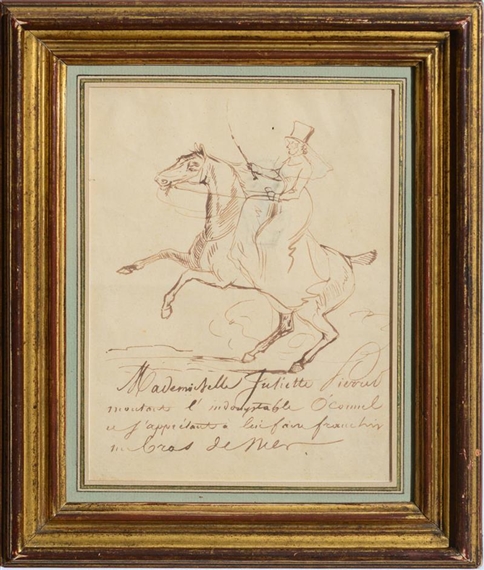 Mademoiselle Juliette
montant l'indomptable O'connel
et s'appretant a lui faire franchir
un Bras de Mer